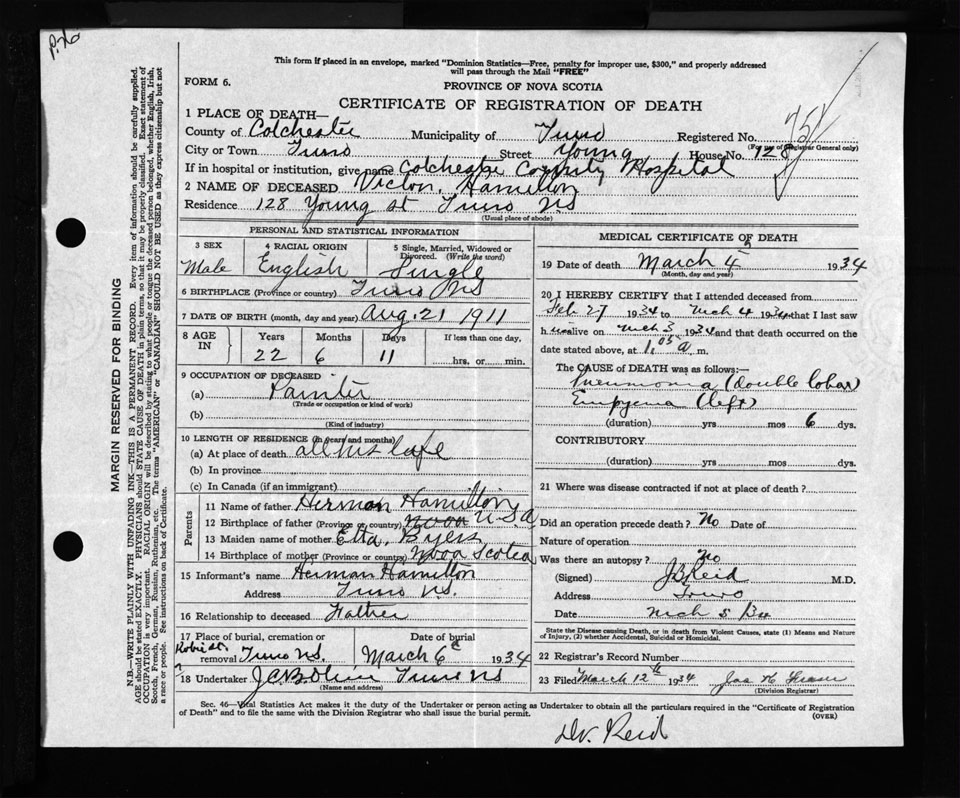 P. 76
This form if placed in an envelope, marked "Dominion Statistics—Free, penalty for improper use, $300," and properly addressed
will pass through the Mail "FREE"
FORM 6.
PROVINCE OF NOVA SCOTIA
CERTIFICATE OF REGISTRATION OF DEATH
1 PLACE OF DEATH—
County of Colchester Municipality of Truro Registered No.
(For use of Registrar General only)
City or Town Truro Street Young House No. 128
If in hospital or institution, give name Colchester County Hospital
2 NAME OF DECEASED Victor. Hamilton
Residence 128 Young St Truro NS
(Usual place of abode)
PERSONAL AND STATISTICAL INFORMATION
3 SEX Male
4 RACIAL ORIGIN English
5 Single, Married, Widowed or Divorced. (Write the word) Single
6 BIRTHPLACE (Province or country) Truro NS
7 DATE OF BIRTH (month, day and year) Aug. 21 1911
8 AGE IN Years 22 Months 6 Days 11 If less than one day, hrs. or min.
9 OCCUPATION OF DECEASED
(a) Painter
(Trade or occupation or kind of work)
(b)
(Kind of industry)
10 LENGTH OF RESIDENCE (in years and months)
(a) At place of death all his life
(b) In province
(c) In Canada (if an immigrant)
Parents
11 Name of father Herman Hamilton
12 Birthplace of father (Province or country) Nova U.S.A
13 Maiden name of mother Etta. Byers
14 Birthplace of mother (Province or country) Nova Scotea
15 Informant's name Herman Hamilton
Address Truro NS.
16 Relationship to deceased Father
17 Place of burial, cremation or removal Truro NS. Date of burial March 6 1934
18 Undertaker Truro NS
(Name and address)
MEDICAL CERTIFICATE OF DEATH
19 Date of death March 4 1934
(Month, day and year)
20 I HEREBY CERTIFY that I attended deceased from
Feb 27 1934 to Mch 4 1934 that I last saw
h im alive on Mch 3 1934 and that death occurred on the
date stated above, at 1.05 a. m.
The CAUSE OF DEATH was as follows:—
Pneumonia (double lobar)
Empyema (left)
(duration) yrs mos 6 dys.
CONTRIBUTORY
(duration) yrs. mos. dys.
21 Where was disease contracted if not at place of death?
Did an operation precede death? No Date of
Nature of operation
Was there an autopsy? No
(Signed) J B Reid M.D.
Address Truro
Date Mch 5
State the Disease causing Death, or in death from Violent Causes, state (1) Means and Nature
of Injury, (2) whether Accidental, Suicidal or Homicidal.
22 Registrar's Record Number
23 Filed March 12th 1934 Jas
(Division Registrar)
Sec. 46—Vital Statistics Act makes it the duty of the Undertaker or person acting as Undertaker to obtain all the particulars required in the "Certificate of Registration
of Death" and to file the same with the Division Registrar who shall issue the burial permit.
(OVER)
Dr. Reid
MARGIN RESERVED FOR BINDING
N.B.—WRITE PLAINLY WITH UNFADING INK—THIS IS A PERMANENT RECORD. Every item of information should be carefully supplied.
AGE should be stated EXACTLY. PHYSICIANS should STATE CAUSE OF DEATH in plain terms, so that it may be properly classified. Exact statement of
OCCUPATION is very important. RACIAL ORIGIN will be described by stating to what people or tongue the deceased person belonged, whether English, Irish,
Scotch, French, German, Russian, Ruthenian, etc. The terms "AMERICAN" or "CANADIAN" SHOULD NOT BE USED as they express citizenship but not
a race or people. See instructions on back of Certificate.